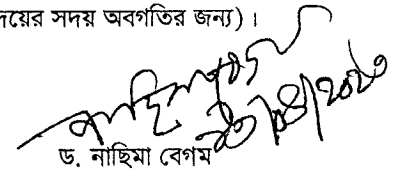 দয়ের সদয় অবগতির জন্য)।
ড. নাছিমা বেগম